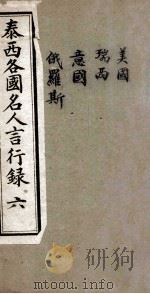 美國
瑞西
意國
俄羅斯
泰西各國名人言行録 六